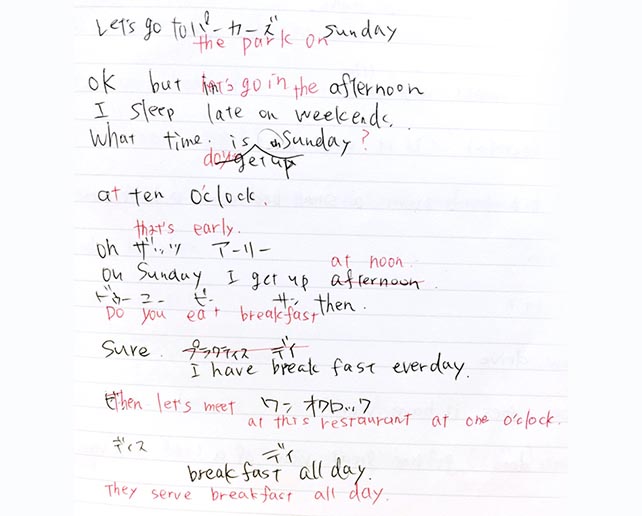 Let's go to パーカーズ sunday
the park on
ok but let's go in the afternoon
I sleep late on weekends.
What time. is on Sunday?
day get up
at ten o'clock.
that's early.
oh ザッツ アーリー
at noon.
on Sunday I get up afternoon
ドゥーユー ビー サン then.
Do you eat breakfast
Sure. プラクティス デイ
I have break fast everday.
then let's meet ワン オクロック
at this restaurant at one o'clock.
ディス デイ
breakfast all day.
They serve breakfast all day.